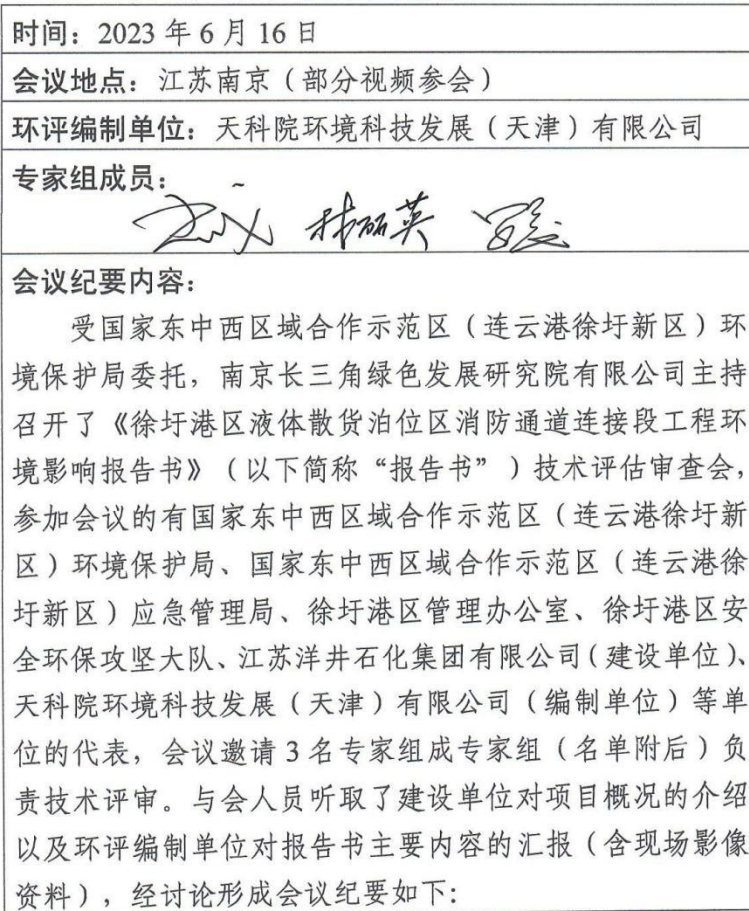 时间：2023 年 6 月 16 日
会议地点：江苏南京（部分视频参会）
环评编制单位：天科院环境科技发展（天津）有限公司
专家组成员：
林丽英
会议纪要内容：
受国家东中西区域合作示范区（连云港徐圩新区）环
境保护局委托，南京长三角绿色发展研究院有限公司主持
召开了《徐圩港区液体散货泊位区消防通道连接段工程环
境影响报告书》（以下简称“报告书”）技术评估审查会，
参加会议的有国家东中西区域合作示范区（连云港徐圩新
区）环境保护局、国家东中西区域合作示范区（连云港徐
圩新区）应急管理局、徐圩港区管理办公室、徐圩港区安
全环保攻坚大队、江苏洋井石化集团有限公司（建设单位）、
天科院环境科技发展（天津）有限公司（编制单位）等单
位的代表，会议邀请 3 名专家组成专家组（名单附后）负
责技术评审。与会人员听取了建设单位对项目概况的介绍
以及环评编制单位对报告书主要内容的汇报（含现场影像
资料），经讨论形成会议纪要如下：